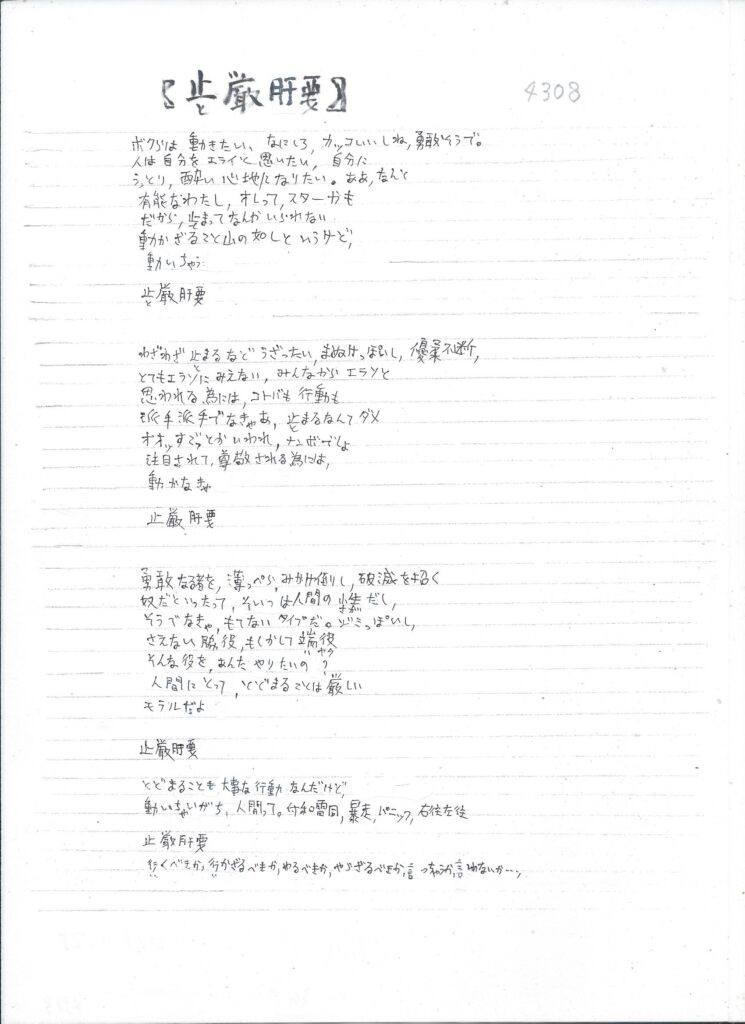 【止厳肝要】
と
4308
ボクらは 動きたい、なにしろ, カッコいいしね, 勇敢そうで。
人は自分を エライと 思いたい, 自分に
うっとり, 酔い心地になりたい。ああ, なんと
有能なわたし, オレって, スターかも
だから, 止まってなんかいられない
動かざること山の如しと いうけど,
動いちゃう
止厳肝要
と
わざわざ 止まるなど うざったい, まぬけっぽいし, 優柔不断,
とてもエラソにみえない, みんなから エラソと
思われる為には, コトバも 行動も
派手派手でなきゃあ, 止まるなんて ダメ
オオッすごっとかいわれ, ナンボでしょ
注目されて, 尊敬される為には,
動かなきゃ
止厳肝要
勇敢なる者を, 薄っぺら, みかけ倒し, 破滅を招く
奴だといったって, そいつは人間の 性 だし,
さが
そうでなきゃ, もてない タイプだ。ジミっぽいし,
さえない 脇役, もしかして 端役
ハヤク
そんな役を, あんた やりたいの?
人間にとって, とどまることは 厳しい
モラルだよ
止厳肝要
とどまることも 大事な 行動 なんだけど,
動いちゃいがち, 人間って。付和雷同, 暴走, パニック, 右往左往
止厳肝要
行くべきか, 行かざるべきか, やるべきか, やらざるべきか, 言っちゃうか, 言わないか…,